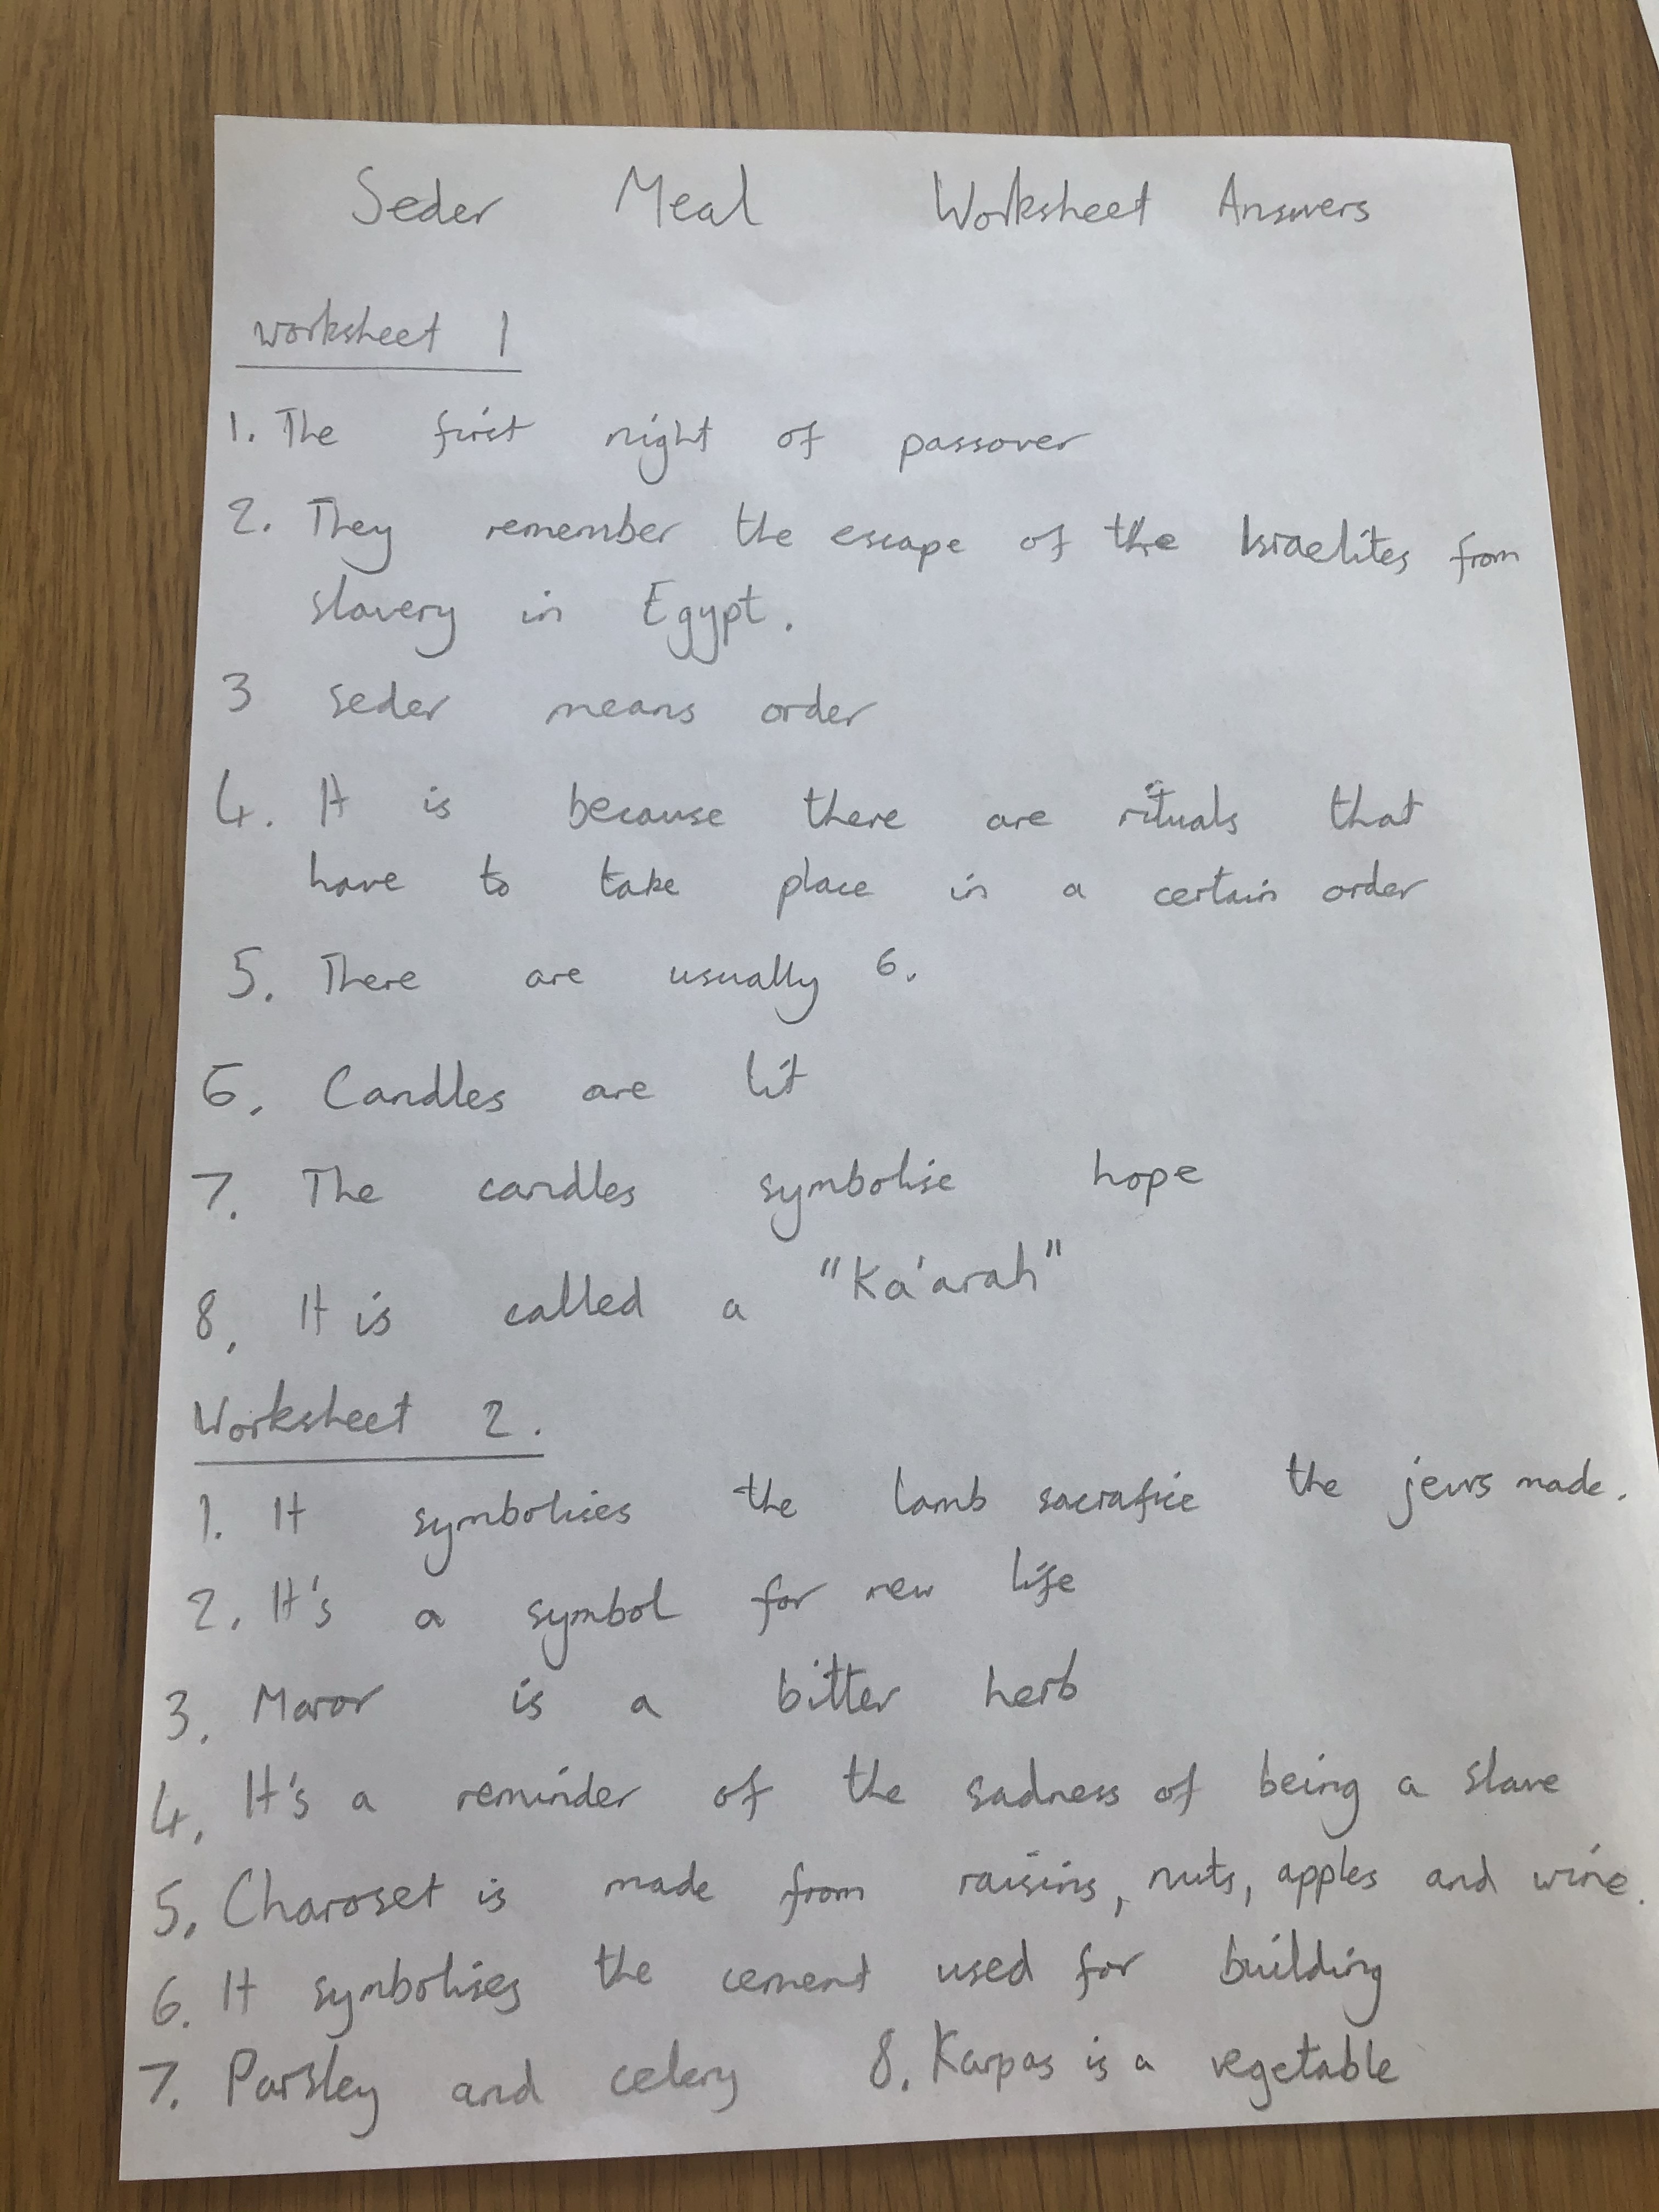 Seder Meal Worksheet Answers
worksheet 1
1. The first night of passover
2. They remember the escape of the Israelites from
slavery in Egypt.
3 seder means order
4. It is because there are rituals that
have to take place in a certain order
5. There are usually 6.
6. Candles are lit
7. The candles symbolise hope
8. It is called a "Ka'arah"
Worksheet 2.
1. It symbolises the lamb sacrafice the jews made.
2. It's a symbol for new life
3. Maror is a bitter herb
4. It's a reminder of the sadness of being a slave
5. Charoset is made from raisins, nuts, apples and wine.
6. It symbolises the cement used for building
7. Parsley and celery 8. Karpas is a vegetable